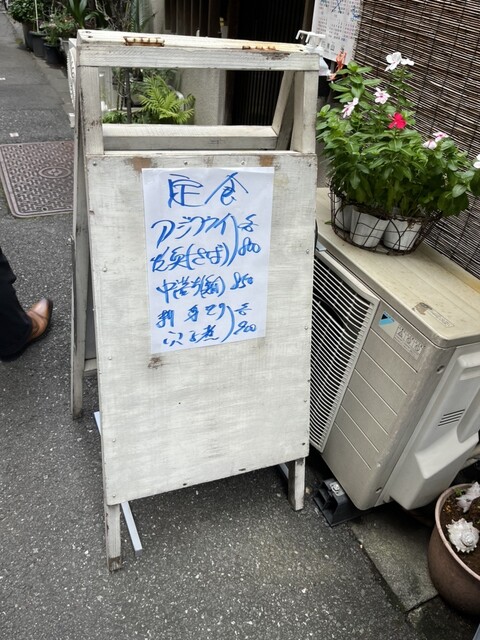 定食
アジフライ 各
焼魚(さば) 800
中落ち 850
刺身 各
穴子煮 900